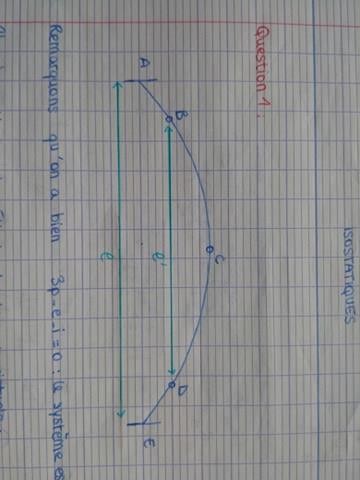 ISOSTATIQUES
Question 1 :
A
B
C
D
E
l'
l
Remarquons qu'on a bien 3p-e-i=0 : le système es